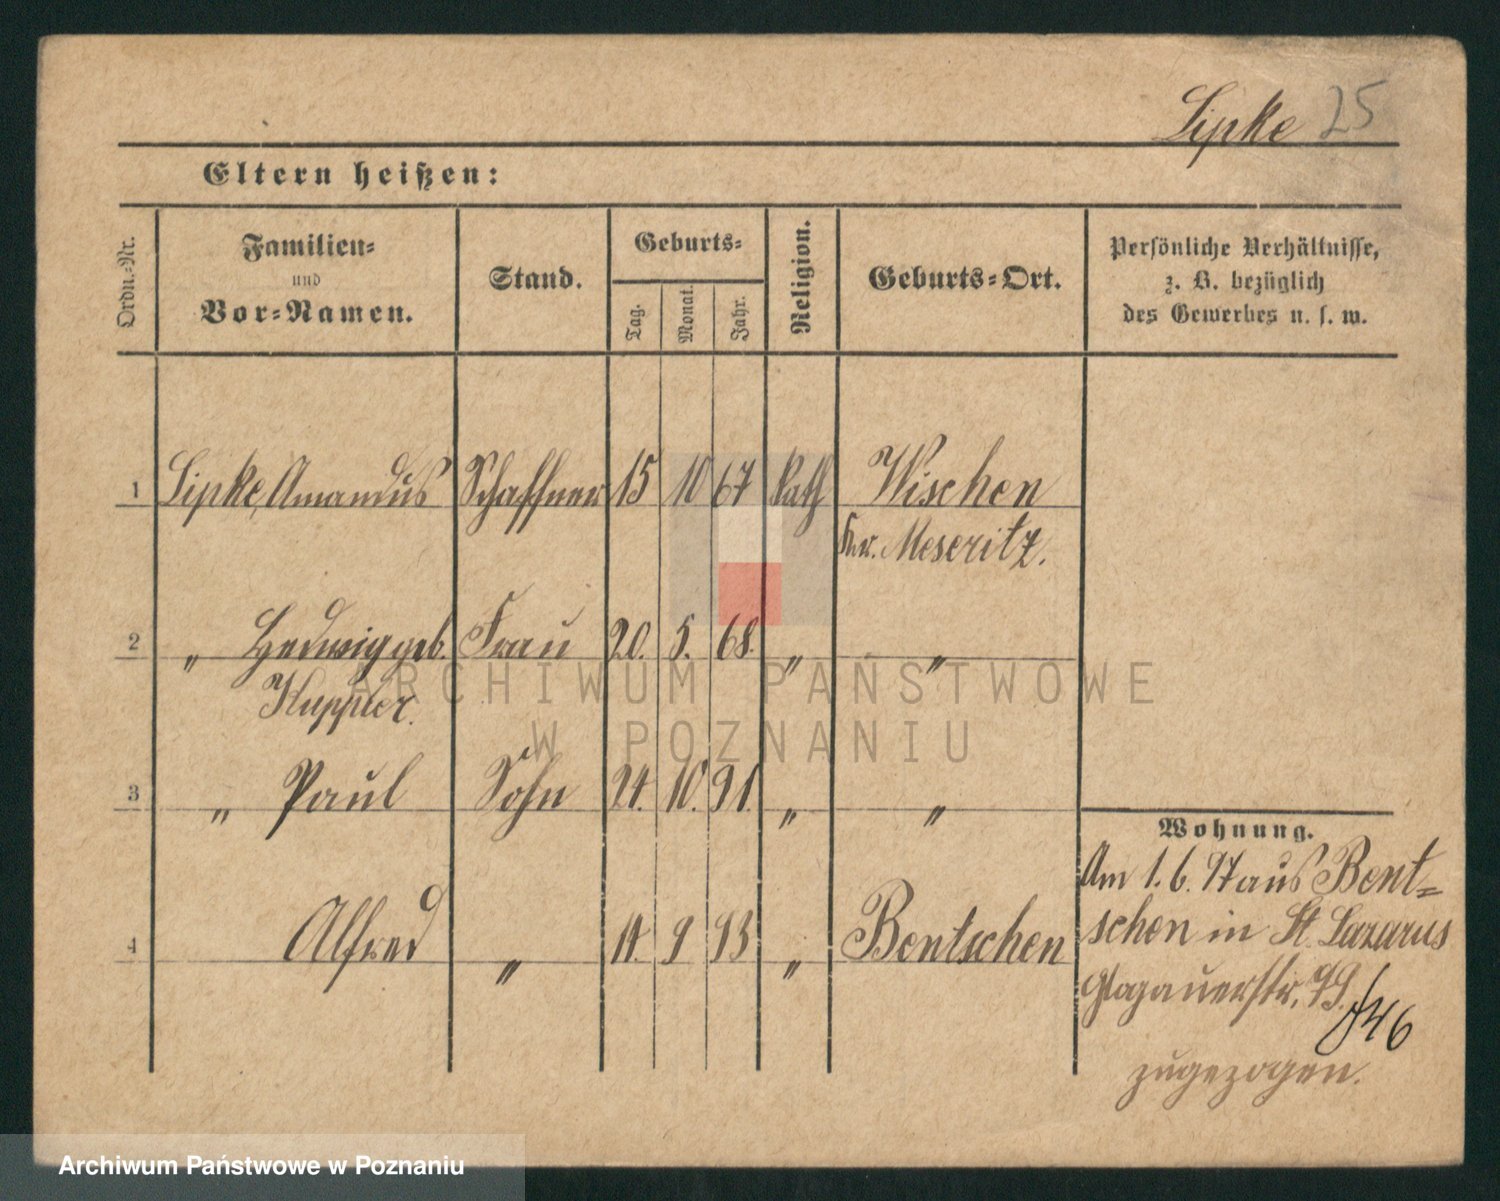 Lipke 25
Eltern heißen:
Ordn.-Nr.
Familien-
und
Vor-Namen.
Stand.
Geburts-
Tag.
Monat.
Jahr.
Religion.
Geburts-Ort.
Persönliche Verhältnisse,
z. B. bezüglich
des Gewerbes u. s. w.
1 Lipke, Amandus Schaffner 15 10 67 Kath Wischen
Kr. Meseritz.
2 " Hedwig geb. Frau 20. 5. 68. " "
Kuppner.
3 " Paul Sohn 24. 10. 91. " "
Wohnung.
Am 1. 6. 97 aus Bent=
4 Alfred " 14. 9 93 " Bentschen
schen in St. Lazarus
Glogauerstr.
46
zugezogen.
ARCHIWUM PAŃSTWOWE
W POZNANIU
Archiwum Państwowe w Poznaniu